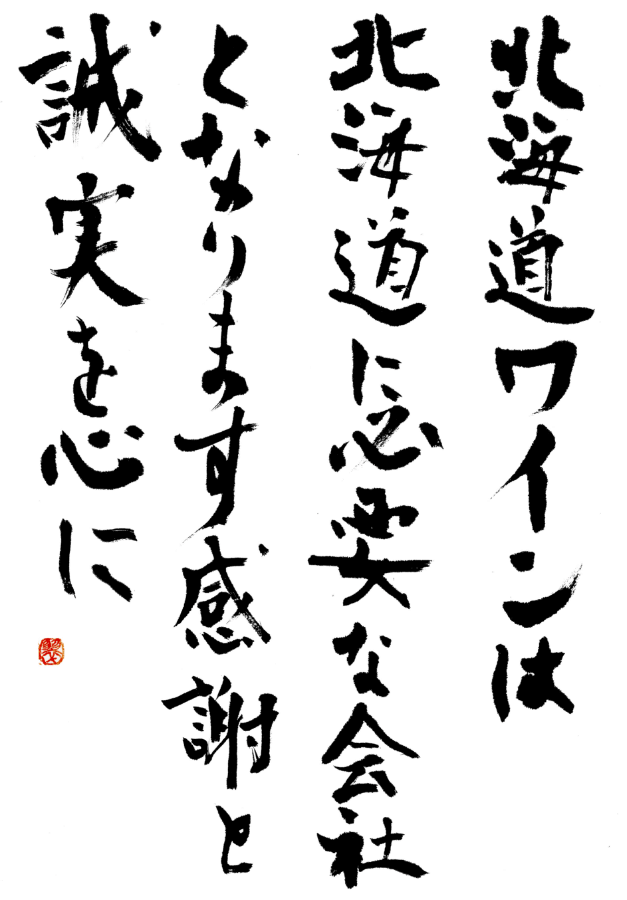 北海道ワインは
北海道に必要な会社
となります感謝と
誠実を心に